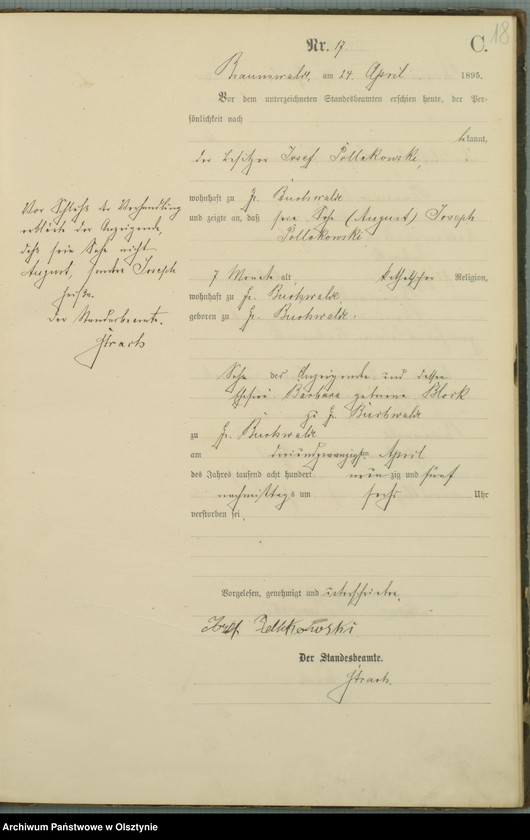 18
Nr. 17
C.
Braunswalde, am 24. April 1895.
Vor dem unterzeichneten Standesbeamten erschien heute, der Per-
sönlichkeit nach
bekannt,
der Besitzer Josef Pollakowski,
wohnhaft zu Gr. Buchwalde
und zeigte an, daß sein Sohn (August) Joseph
Pollakowski,
7 Monate alt katholischer Religion,
wohnhaft zu Gr. Buchwalde,
geboren zu Gr. Buchwalde,
Sohn des Anzeigenden und dessen
Ehefrau Barbara geborene Block
zu Gr. Buchwalde
zu Gr. Buchwalde
am dreiundzwanzigsten April
des Jahres tausend acht hundert neun zig und fünf
nachmittags um sechs Uhr
verstorben sei.
Vor Schluß der Verhandlung
erklärte der Anzeigende,
daß sein Sohn nicht
August, sondern Joseph
heiße.
Der Standesbeamte.
Vorgelesen, genehmigt und unterschrieben.
Josef Pollakowski
Der Standesbeamte.
Archiwum Państwowe w Olsztynie